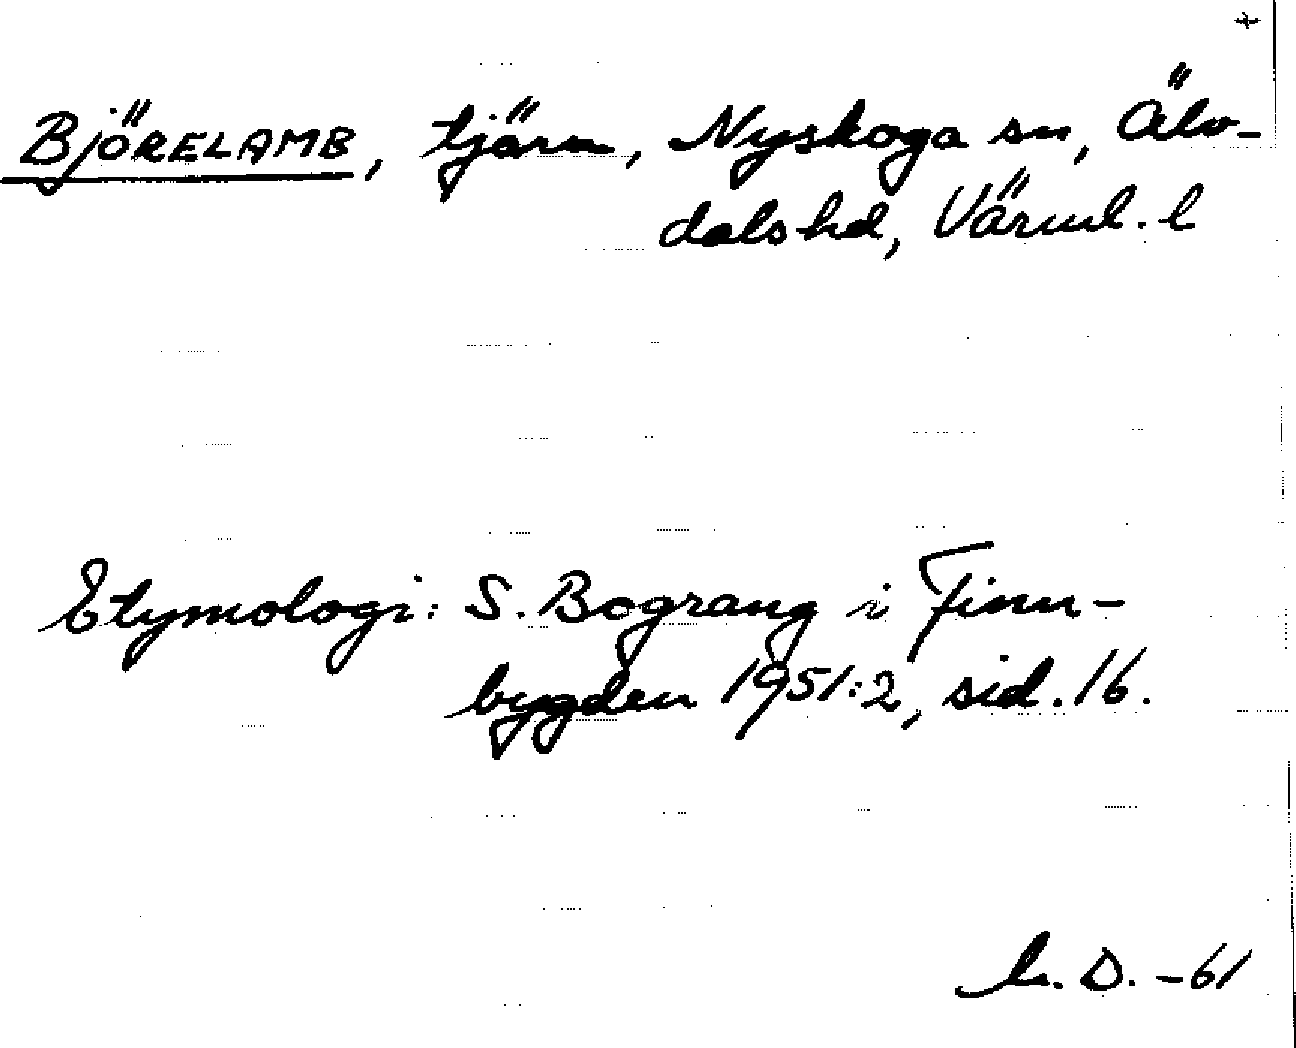 BJÖRELAMB, tjärn, Nyskoga sn, Älv-
dals hd, Värml. l
Etymologi: S. Bograng i Finn-
bygden 1951:2, sid. 16.
D. -61